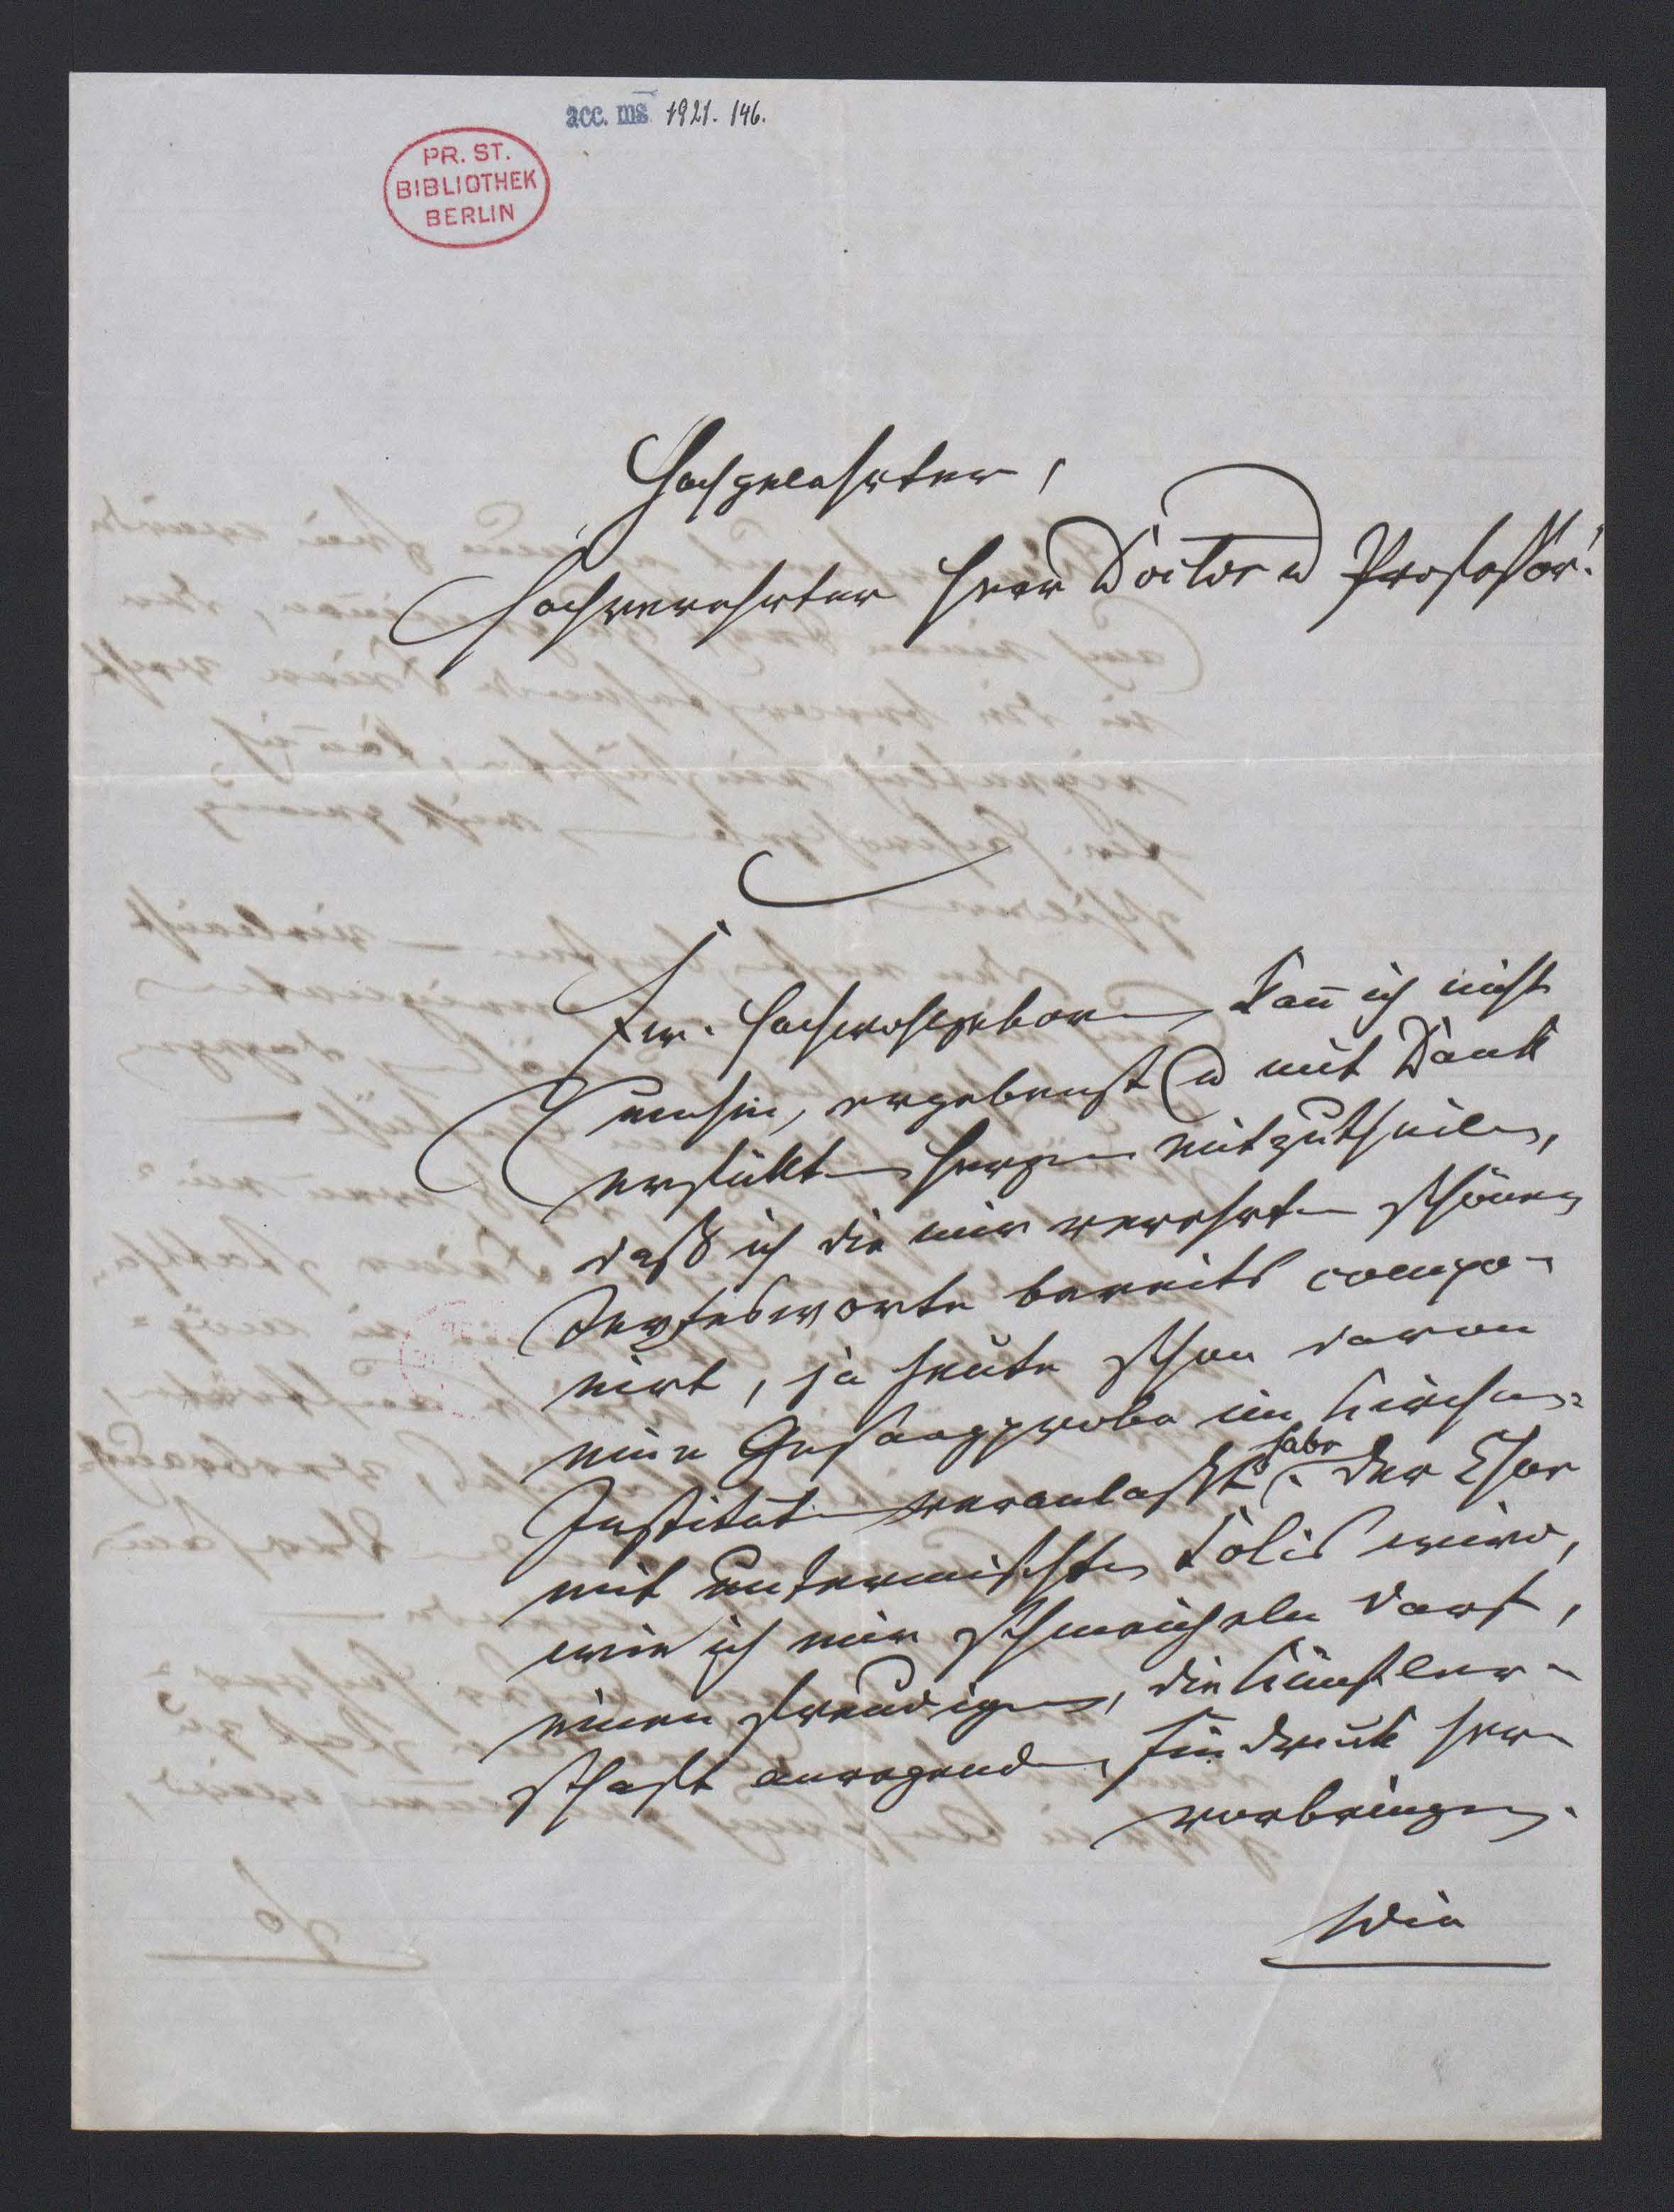 acc. ms 1921. 146.
PR. ST.
BIBLIOTHEK
BERLIN
Hochgelahrter,
Hochverehrter Herr Doctor u Professor!
Ew. Hochwohlgeboren kañ ich nicht
umhin, ergebenst u mit Dank
erfüllten Herzen mitzutheilen,
daß ich die mir verehrten schönen
Textesworte bereits compo-
nirt, ja heute schon davon
eine Gesangprobe im Kirchen-
Institut veranlaßt habe. Der Chor
mit untermischten Solis wird,
wie ich mir schmeicheln darf,
einen freudigen, die Künstler-
schaft anregenden Eindruck her-
vorbringen.
Die